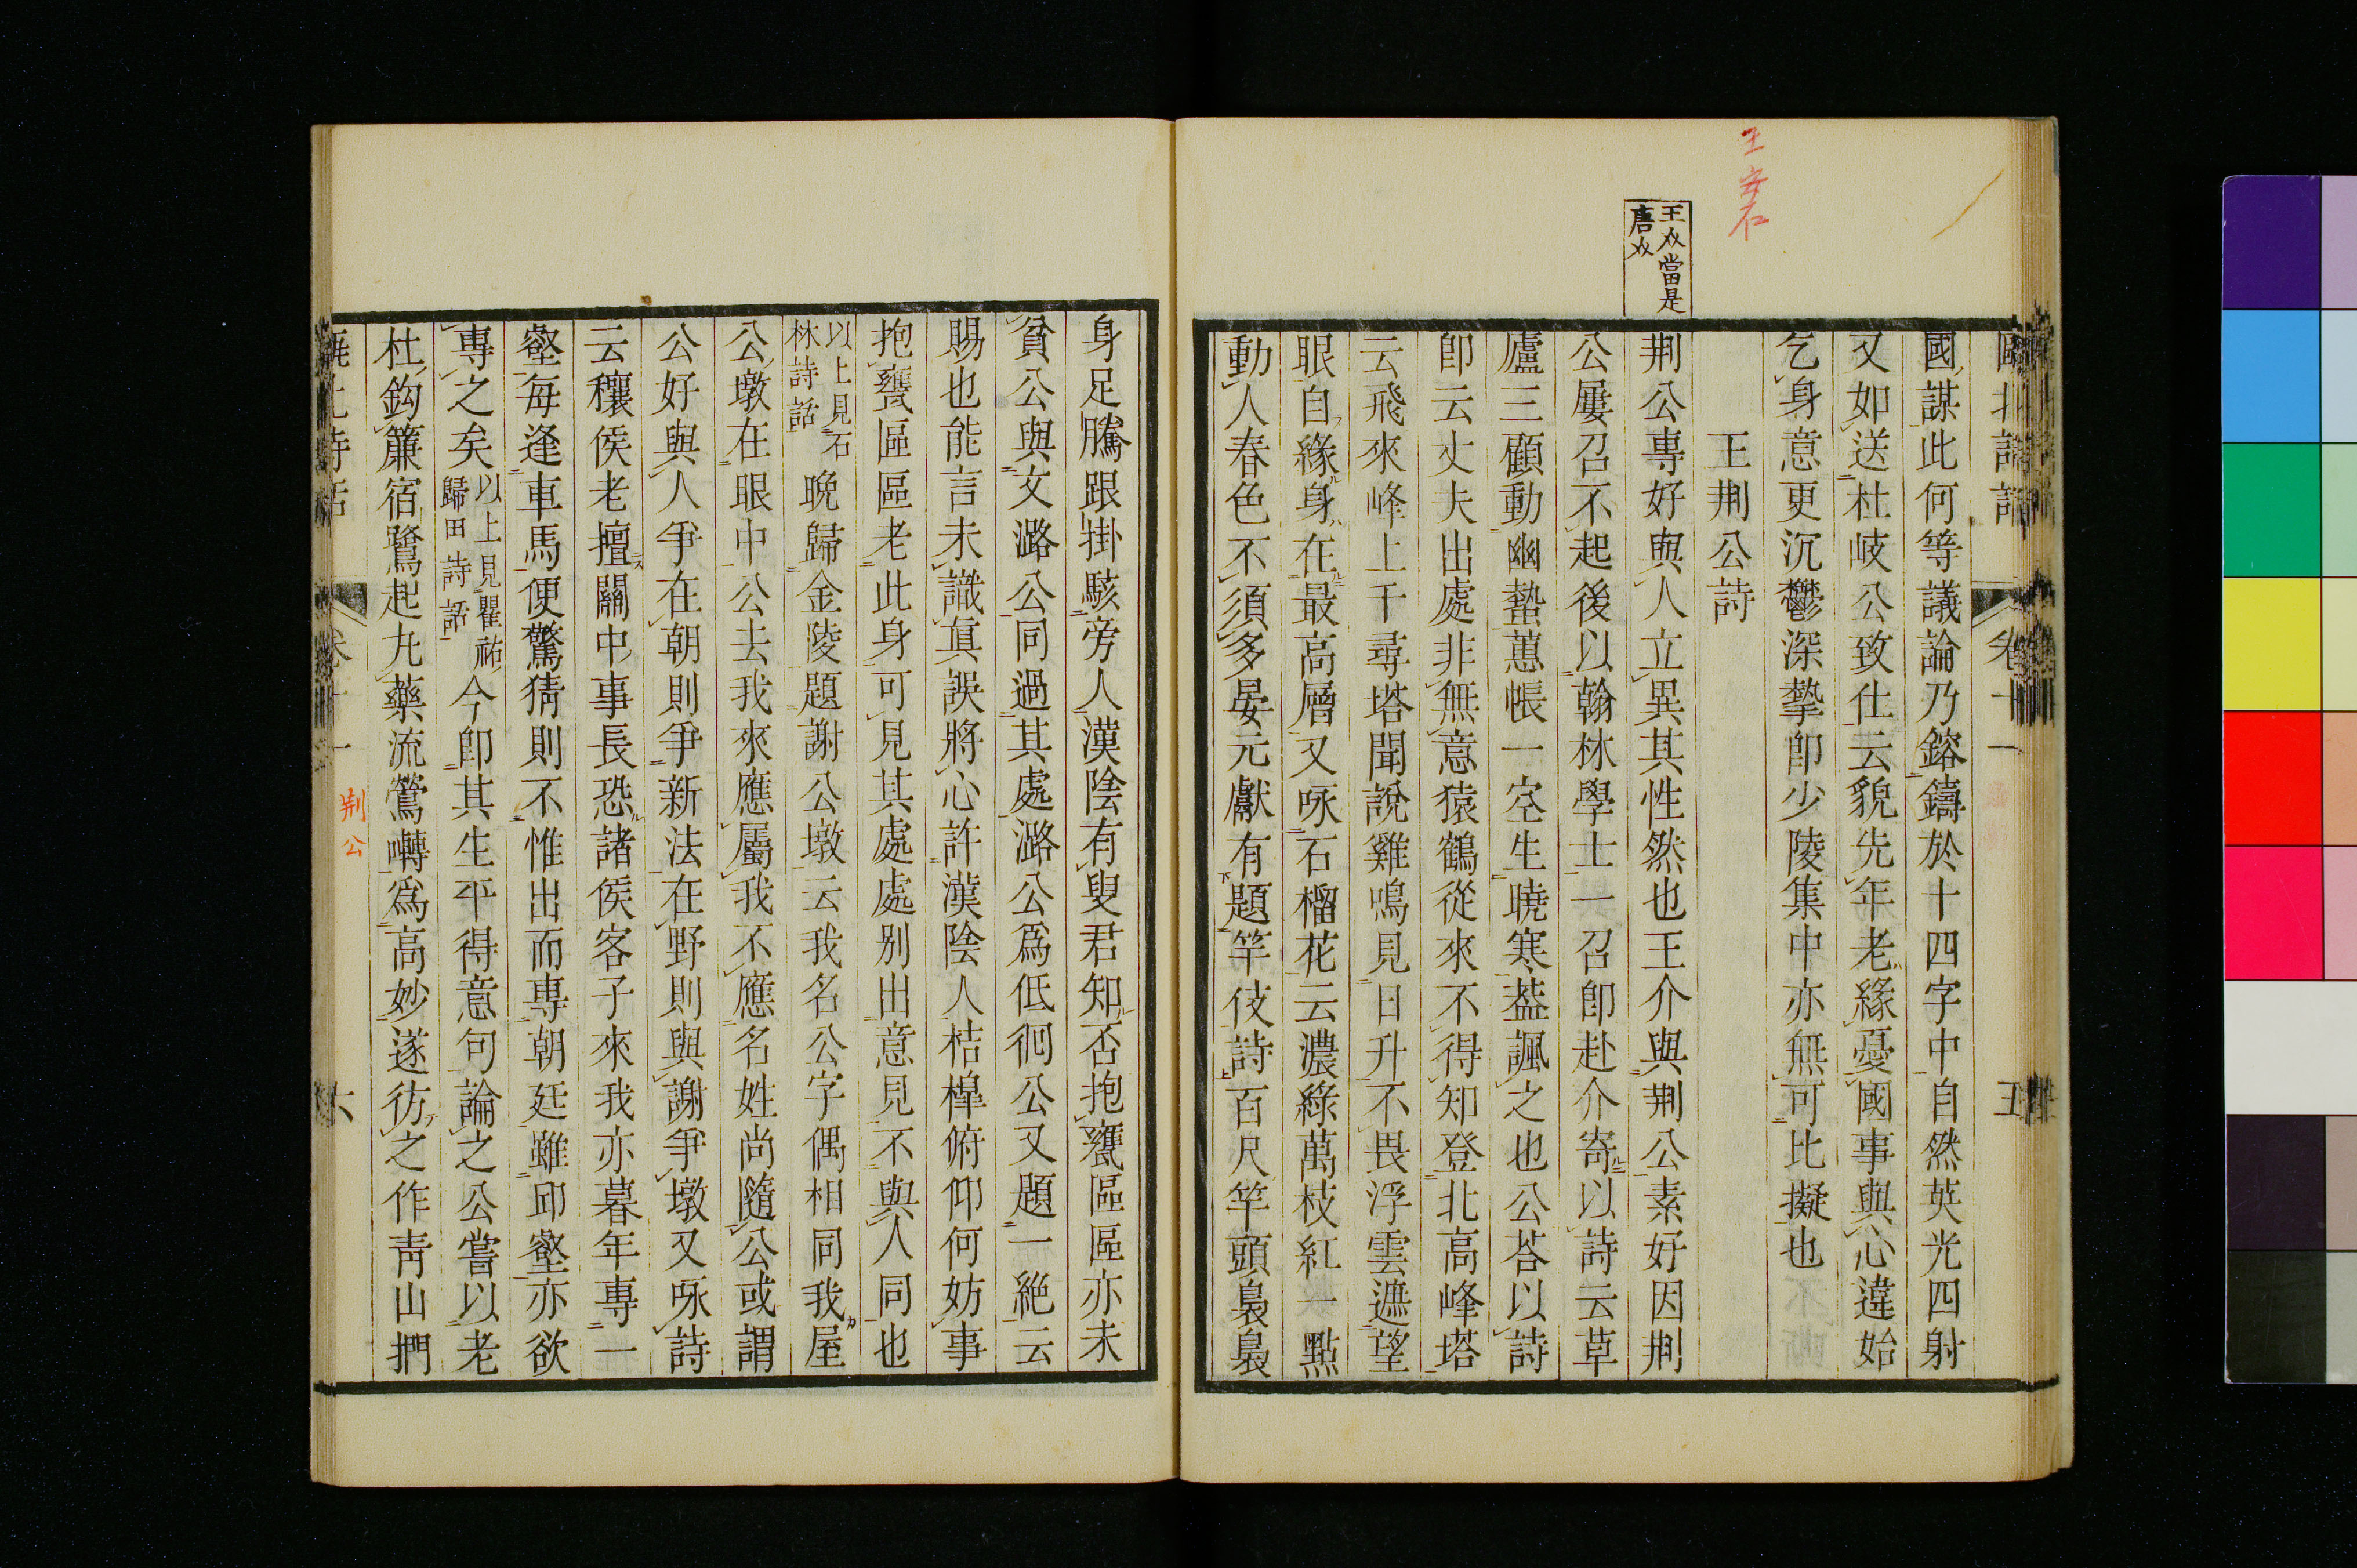 王安石
王介當是
唐介
甌北詩話　卷十一　五
國謀此何等議論乃鎔鑄於十四字中自然英光四射
又如送杜岐公致仕云貌先年老緣憂國事與心違始
乞身意更沉鬱深摯卽少陵集中亦無可比擬也
王荆公詩
荆公專好與人立異其性然也王介與荆公素好因荆
公屢召不起後以翰林學士一召卽赴介寄以詩云草
廬三顧動幽蟄蕙帳一空生曉寒葢諷之也公荅以詩
卽云丈夫出處非無意猿鶴從來不得知登北高峰塔
云飛來峰上千尋塔聞說雞鳴見日升不畏浮雲遮望
眼自緣身在最高層又咏石榴花云濃綠萬枝紅一點
動人春色不須多晏元獻有題竿伎詩百尺竿頭裊裊
身足騰跟掛駭旁人漢陰有叟君知否抱甕區區亦未
貧公與文潞公同過其處潞公爲低徊公又題一絕云
賜也能言未識眞誤將心許漢陰人桔槹俯仰何妨事
抱甕區區老此身可見其處處别出意見不與人同也
以上見石林詩話晚歸金陵題謝公墩云我名公字偶相同我屋
公墩在眼中公去我來應屬我不應名姓尚隨公或謂
公好與人爭在朝則爭新法在野則與謝爭墩又咏詩
云穰侯老擅關中事長恐諸侯客子來我亦暮年專一
壑每逢車馬便驚猜則不惟出而專朝廷雖邱壑亦欲
專之矣以上見瞿祐歸田詩話今卽其生平得意句論之公嘗以老
杜鈎簾宿鷺起丸藥流鶯囀爲高妙遂彷之作青山捫
甌北詩話　卷十一　六
荆公